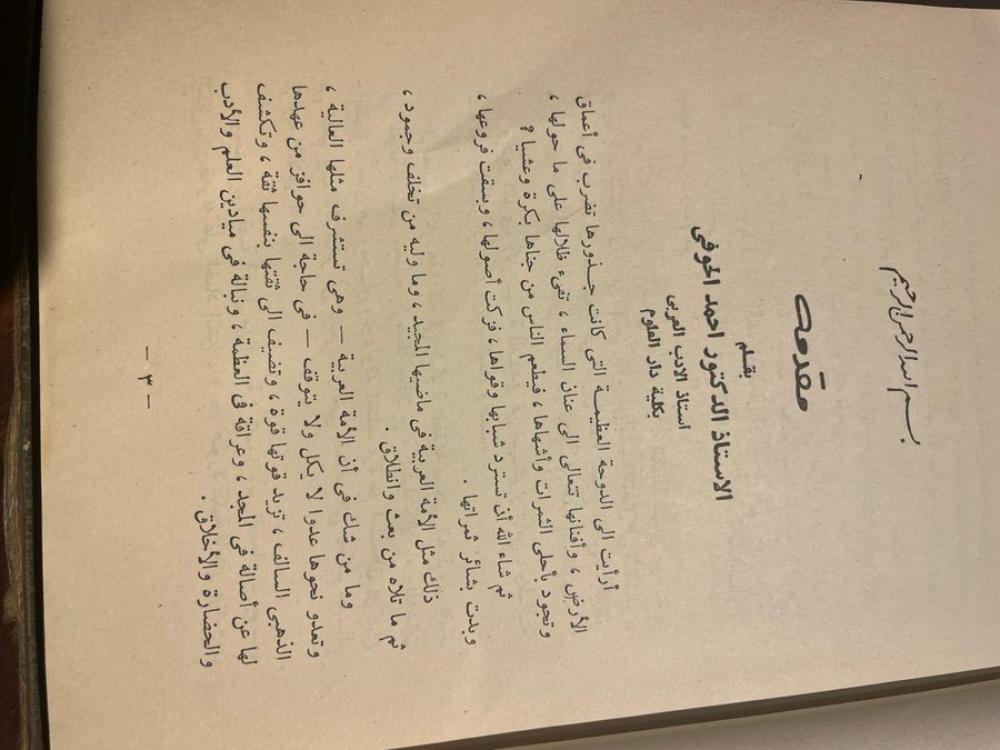 بسم الله الرحمن الرحيم
مقدمة
بقلم
الاستاذ الدكتور احمد الحوفى
استاذ الادب العربى
بكلية دار العلوم
أرأيت الى الدوحة العظيمة التى كانت جذورها تضرب فى أعماق
الأرض ، وأفنانها تتعالى الى عنان السماء ، تفىء ظلالها على ما حولها ،
وتجود بأحلى الثمرات وأشهاها ، فيطعم الناس من جناها بكرة وعشيا ؟
ثم شاء الله أن تسترد شبابها وقواها ، فزكت أصولها ، وبسقت فروعها ،
وبدت بشائر ثمراتها .
ذلك مثل الأمة العربية فى ماضيها المجيد ، وما وليه من تخلف وجمود ،
ثم ما تلاه من بعث وانطلاق .
وما من شك فى أن الأمة العربية — وهى تستشرف مثلها العالية ،
وتعدو نحوها عدوا لا يكل ولا يتوقف — فى حاجة الى حوافز من عهدها
الذهبى السالف ، تزيد قوتها قوة ، وتضيف الى ثقتها بنفسها ثقة ، وتكشف
لها عن أصالة فى المجد ، وعراقة فى العظمة ، ونبالة فى ميادين العلم والأدب
والحضارة والأخلاق .
— ٣ —